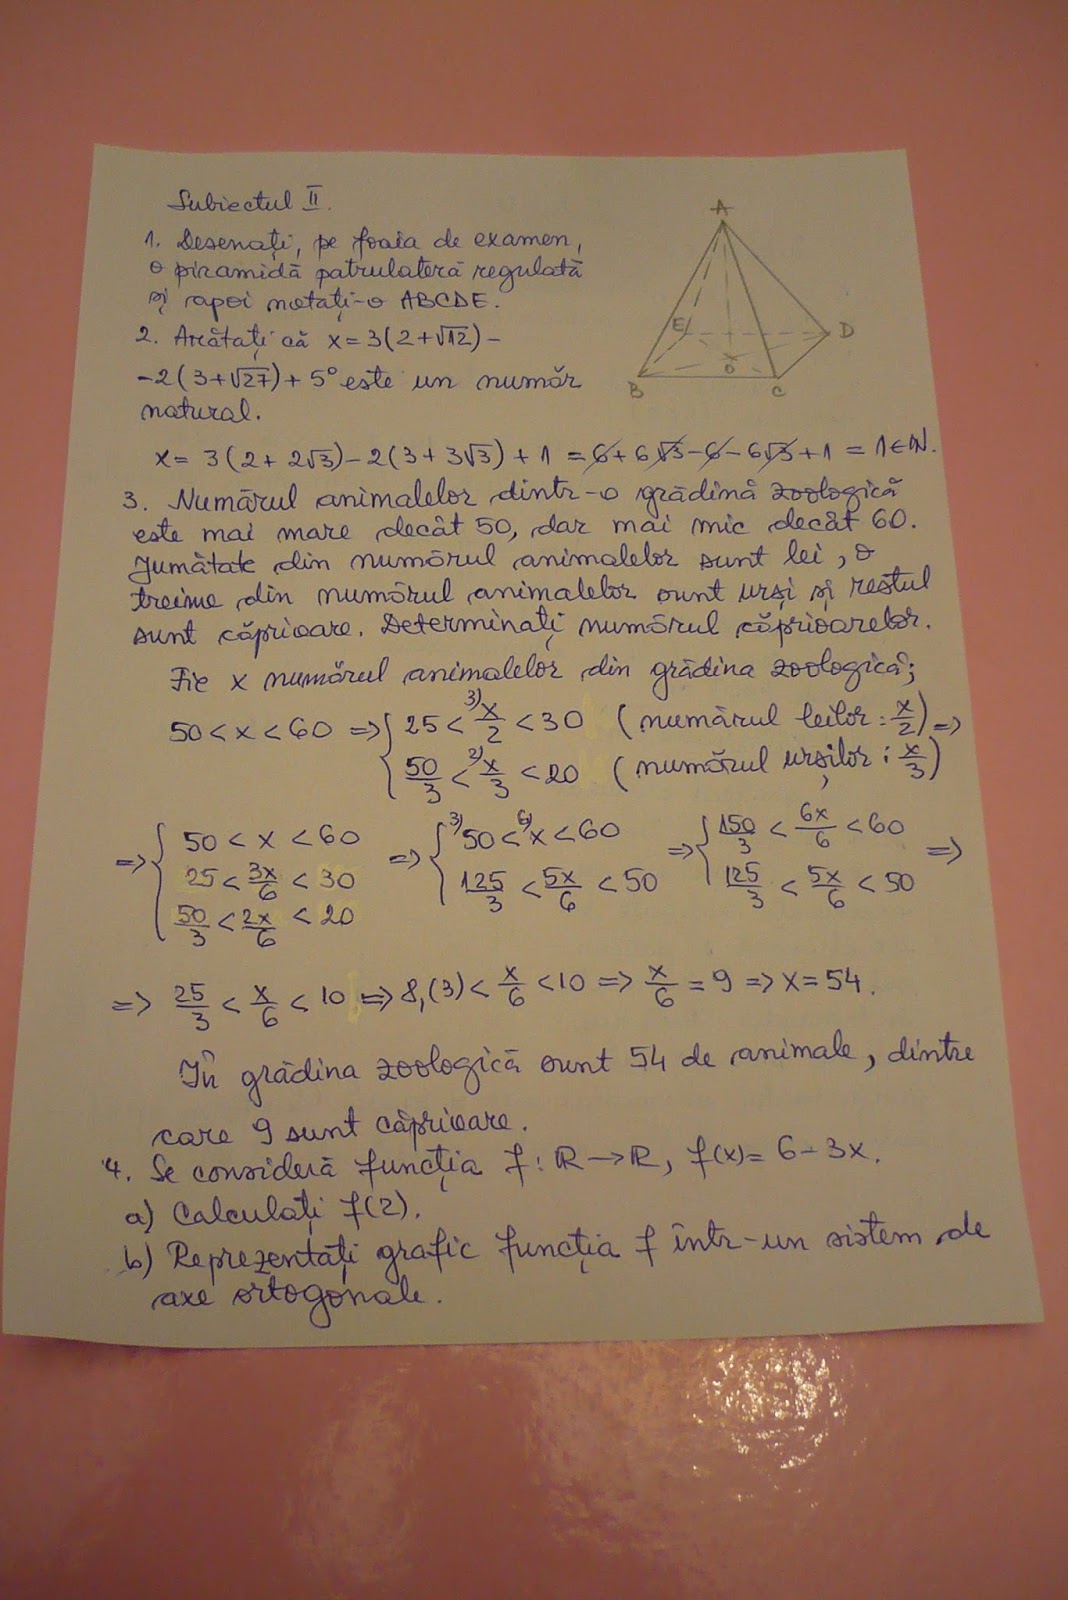 Subiectul II.
1. Desenați, pe foaia de examen,
o piramidă patrulateră regulată
și apoi notați-o ABCDE.
A
E
D
B
O
C
2. Arătați că x=3(2+√12)-
-2(3+√27)+5⁰ este un număr
natural.
x= 3(2+2√3)-2(3+3√3)+1 =6+6√3-6-6√3+1 = 1∈ℕ.
3. Numărul animalelor dintr-o grădină zoologică
este mai mare decât 50, dar mai mic decât 60.
Jumătate din numărul animalelor sunt lei, o
treime din numărul animalelor sunt urși și restul
sunt căprioare. Determinați numărul căprioarelor.
Fie x numărul animalelor din grădina zoologică;
50<x<60 => { 25 < ³⁾x/2 <30 (numărul leilor: x/2) =>
50/3 < ²⁾x/3 <20 (numărul urșilor: x/3)
=> { 50 < x < 60 => { ³⁾50 < ⁶⁾x < 60 => { 150/3 < 6x/6 < 60 =>
25 < 3x/6 < 30 125/3 < 5x/6 < 50 125/3 < 5x/6 < 50
50/3 < 2x/6 < 20
=> 25/3 < x/6 < 10 => 8,(3) < x/6 < 10 => x/6 = 9 => x = 54.
În grădina zoologică sunt 54 de animale, dintre
care 9 sunt căprioare.
4. Se consideră funcția f: ℝ→ℝ, f(x)= 6-3x.
a) Calculați f(2).
b) Reprezentați grafic funcția f într-un sistem de
axe ortogonale.